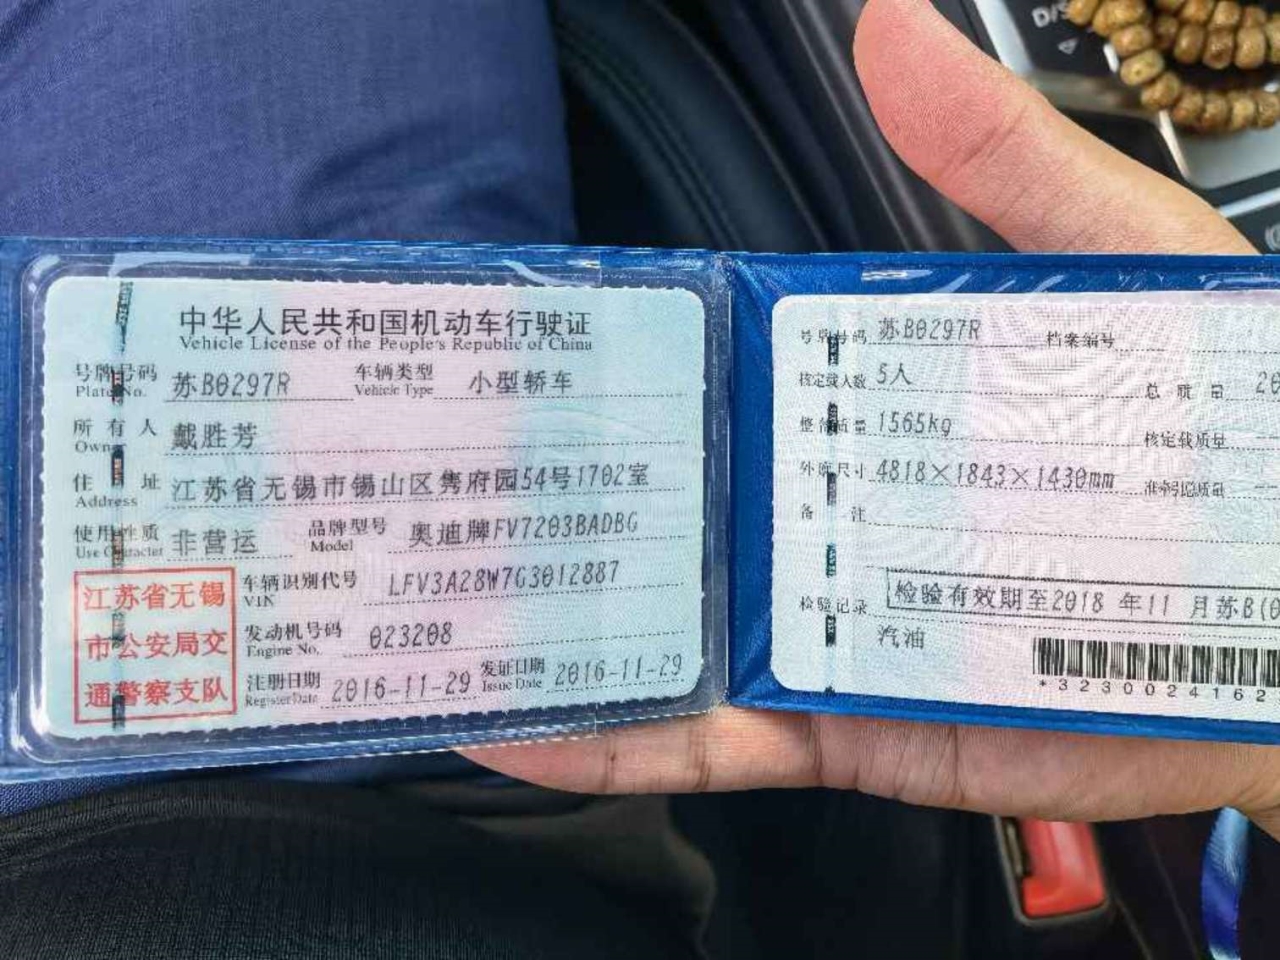 中华人民共和国机动车行驶证
Vehicle License of the People's Republic of China
号牌号码 Plate No. 苏B0297R 车辆类型 Vehicle Type 小型轿车
所有人 Owner 戴胜芳
住址 Address 江苏省无锡市锡山区隽府园54号1702室
使用性质 Use Character 非营运 品牌型号 Model 奥迪牌FV7203BADBG
江苏省无锡
市公安局交
通警察支队
车辆识别代号 VIN LFV3A28W7G3012887
发动机号码 Engine No. 023208
注册日期 Register Date 2016-11-29 发证日期 Issue Date 2016-11-29
号牌号码 苏B0297R 档案编号
核定载人数 5人 总质量 20
整备质量 1565kg 核定载质量
外廓尺寸 4818×1843×1430mm 准牵引总质量 --
备注
检验记录 检验有效期至2018 年11 月苏B(0
汽油
*3230024162
D/S